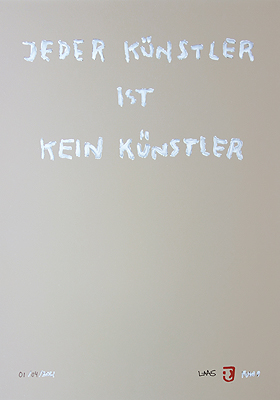 JEDER KÜNSTLER
IST
KEIN KÜNSTLER
LMS